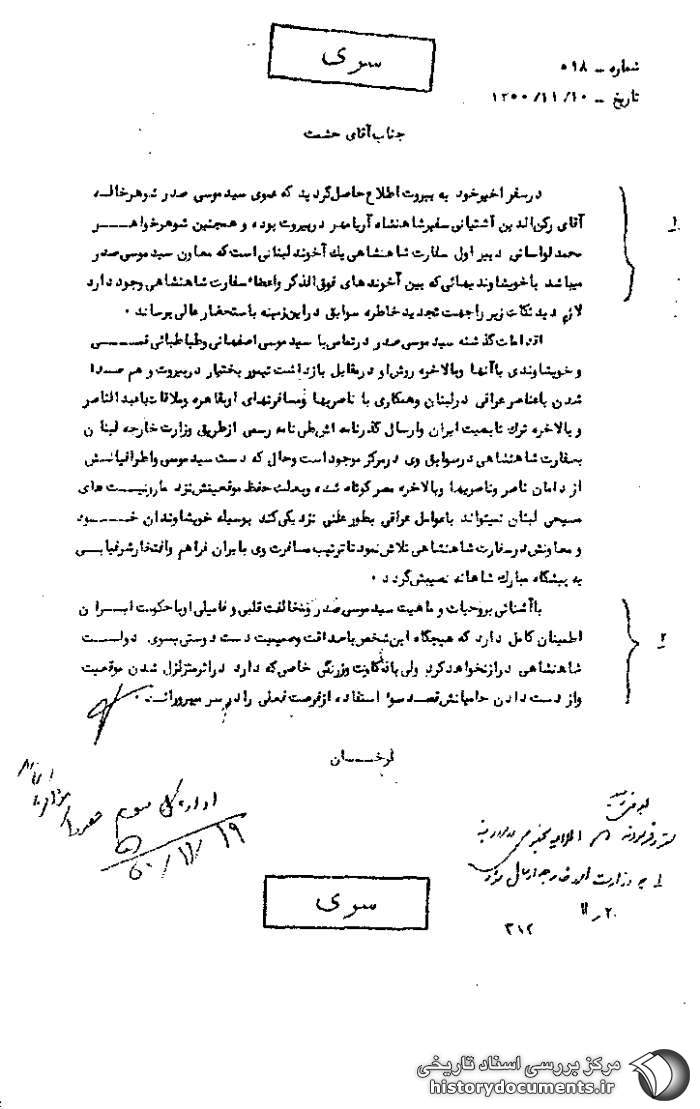 سری
شماره - ۵۹۸
تاریخ - ۱۳۵۰/۱۱/۱۰
جناب آقای حشمت
در سفر اخیر خود به بیروت اطلاع حاصل گردید که عموی سید موسی صدر شوهر خاله
آقای رکن الدین آشتیانی سفیر شاهنشاه آریامهر در بیروت بوده و همچنین شوهر خواهر
محمد لواسانی دبیر اول سفارت شاهنشاهی یک آخوند لبنانی است که معاون سید موسی صدر
میباشد با خویشاوندیهائی که بین آخوندهای فوق الذکر و اعضاء سفارت شاهنشاهی وجود دارد
لازم دید نکات زیر را جهت تجدید خاطره سوابق در این زمینه باستحضار عالی برساند ۰
اقدامات گذشته سید موسی صدر در تماس با سید موسی اصفهانی و طباطبائی قمی
و خویشاوندی با آنها وبالاخره روش او در مقابل بازداشت تیمور بختیار در بیروت و هم صدا
شدن با عناصر عراقی در لبنان و همکاری با ناصریها و مسافرتهای او بقاهره و ملاقات با عبدالناصر
و بالاخره ترک تابعیت ایران و ارسال گذرنامه اش طی نامه رسمی از طریق وزارت خارجه لبنان
بسفارت شاهنشاهی در سوابق وی در مرکز موجود است و حال که دست سید موسی و اطرافیانش
از دامان ناصر و ناصریها وبالاخره مصر کوتاه شده و بعلت حفظ موقعیتش نزد مارونیست های
مسیحی لبنان نمیتواند با عوامل عراقی بطور علنی نزدیکی کند بوسیله خویشاوندان خود
و معاونش در سفارت شاهنشاهی تلاش نمود تا ترتیب مسافرت وی بایران فراهم و افتخار شرفیابی
به پیشگاه مبارک شاهانه نصیبش گردد ۰
با آشنائی بروحیات و ماهیت سید موسی صدر و مخالفت قلبی و فامیلی او با حکومت ایران
اطمینان کامل دارد که هیچگاه این شخص با صداقت و صمیمیت دست دوستی بسوی دولت
شاهنشاهی دراز نخواهد کرد ولی با ذکاوت و زرنگی خاصی که دارد در اثر متزلزل شدن موقعیت
و از دست دادن حامیانش قصد سوء استفاده از فرصت فعلی را در سر میپروراند ۰
فرخسان
۱
۲
اداره کل سوم
۵۰/۱۱/۱۹
بعرض رسید
مقرر فرمودند
به وزارت امور خارجه ارسال
۲۰ ر ۱۱
۳۱۲
سری
مرکز بررسی اسناد تاریخی
historydocuments.ir